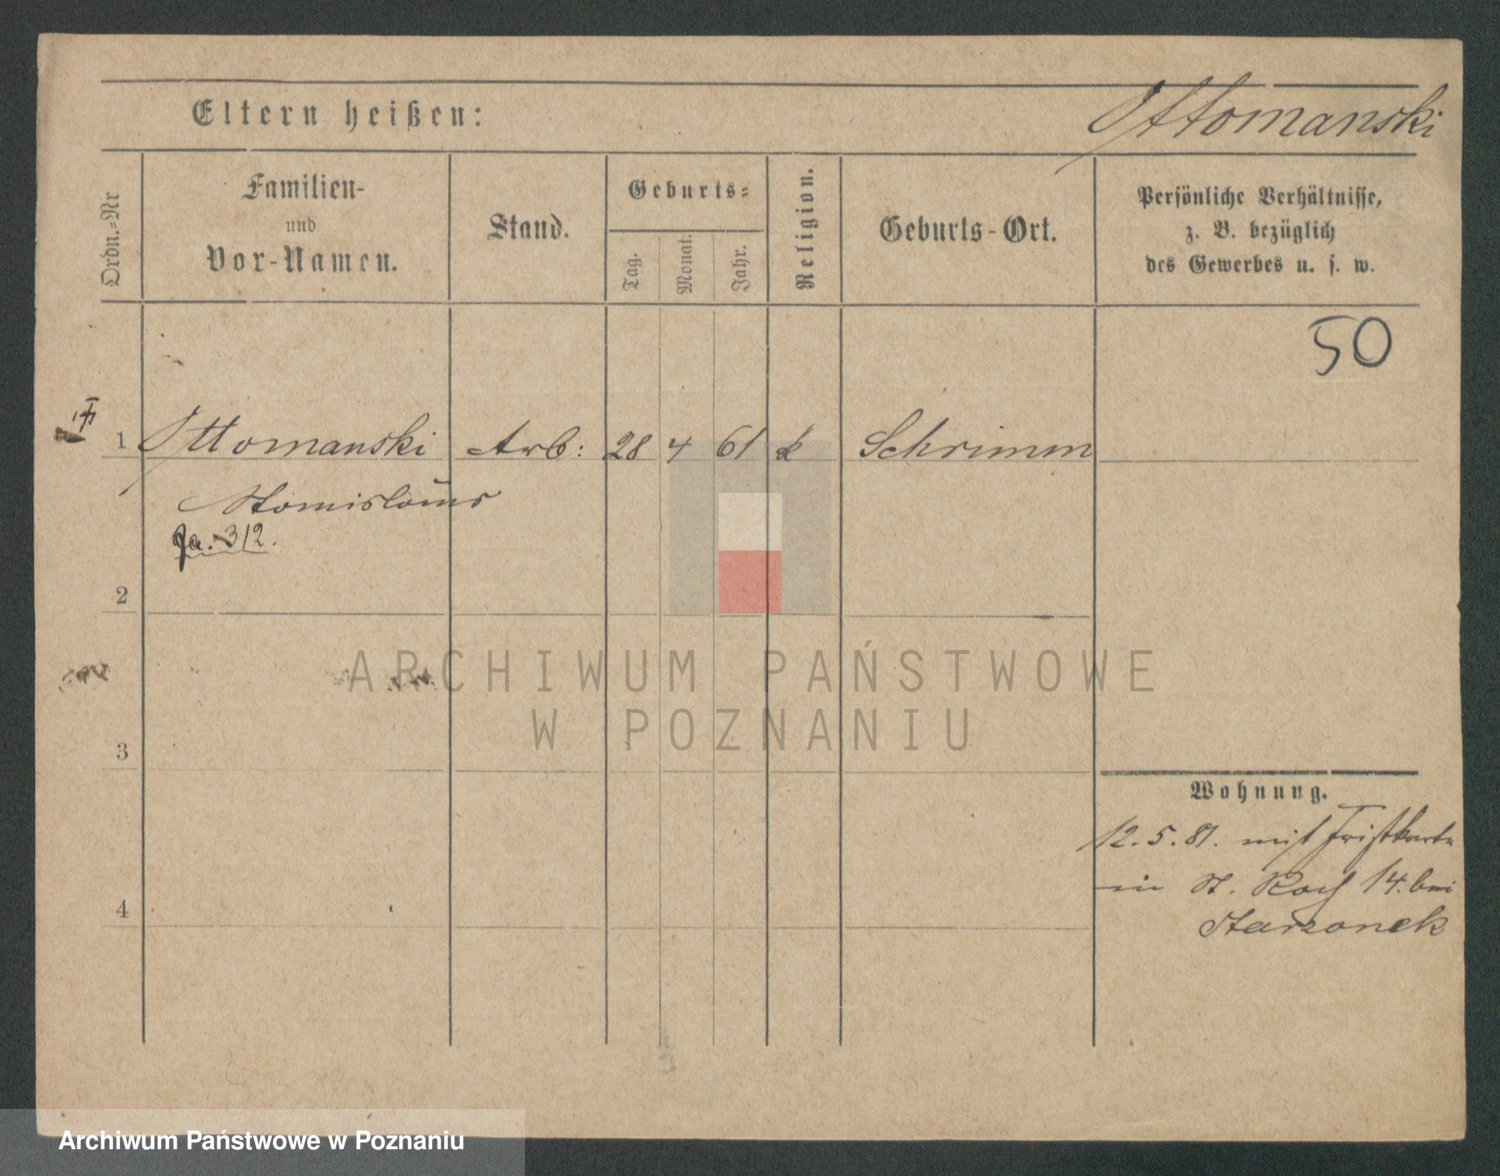 Ottomanski
Eltern heißen:
Ordn.-Nr
Familien-
und
Vor-Namen.
Stand.
Geburts-
Tag.
Monat.
Jahr.
Religion.
Geburts-Ort.
Persönliche Verhältnisse,
z. B. bezüglich
des Gewerbes u. s. w.
50
1 Ottomanski Arb: 28 4 61 k Schrimm
Stanislaus
312.
2
3
4
Wohnung.
12.5.81. mit Fristkarte
in St. Roch 14. bei
Starzonek
ARCHIWUM PAŃSTWOWE
W POZNANIU
Archiwum Państwowe w Poznaniu